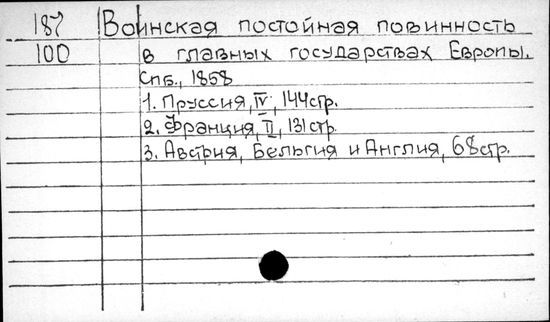 187 Воинская постойная повинность
100 в главных государствах Европы.
Спб., 1858
1. Пруссия, IV, 144стр.
2. Франция, II, 131стр
3. Австрия, Бельгия и Англия, 68стр.